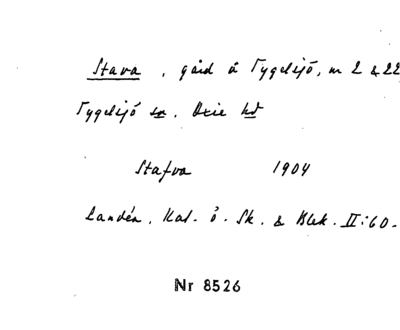 Stava, gård å Tygelsjö, nr 2 & 22
Tygelsjö sn. Oxie hd
Stafva 1904
Landén, Kal. ö. Sk. & Blek. II:60.
Nr 8526